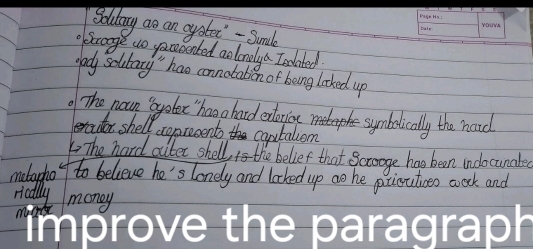 Page No.:
Date:
YOUVA
"Solitary as an oyster" - Simile
• Scrooge is presented as lonely & Isolated.
• adj solitary" has connotation of being locked up
• The noun "oyster" has a hard exterior metapho symbolically the hard
outer shell represents the capitalism
↳ The hard outer shell, is the belief that Scrooge has been indocunated
metapho to believe he's lonely and locked up as he prioritises work and
rically money
mirror
improve the paragraph